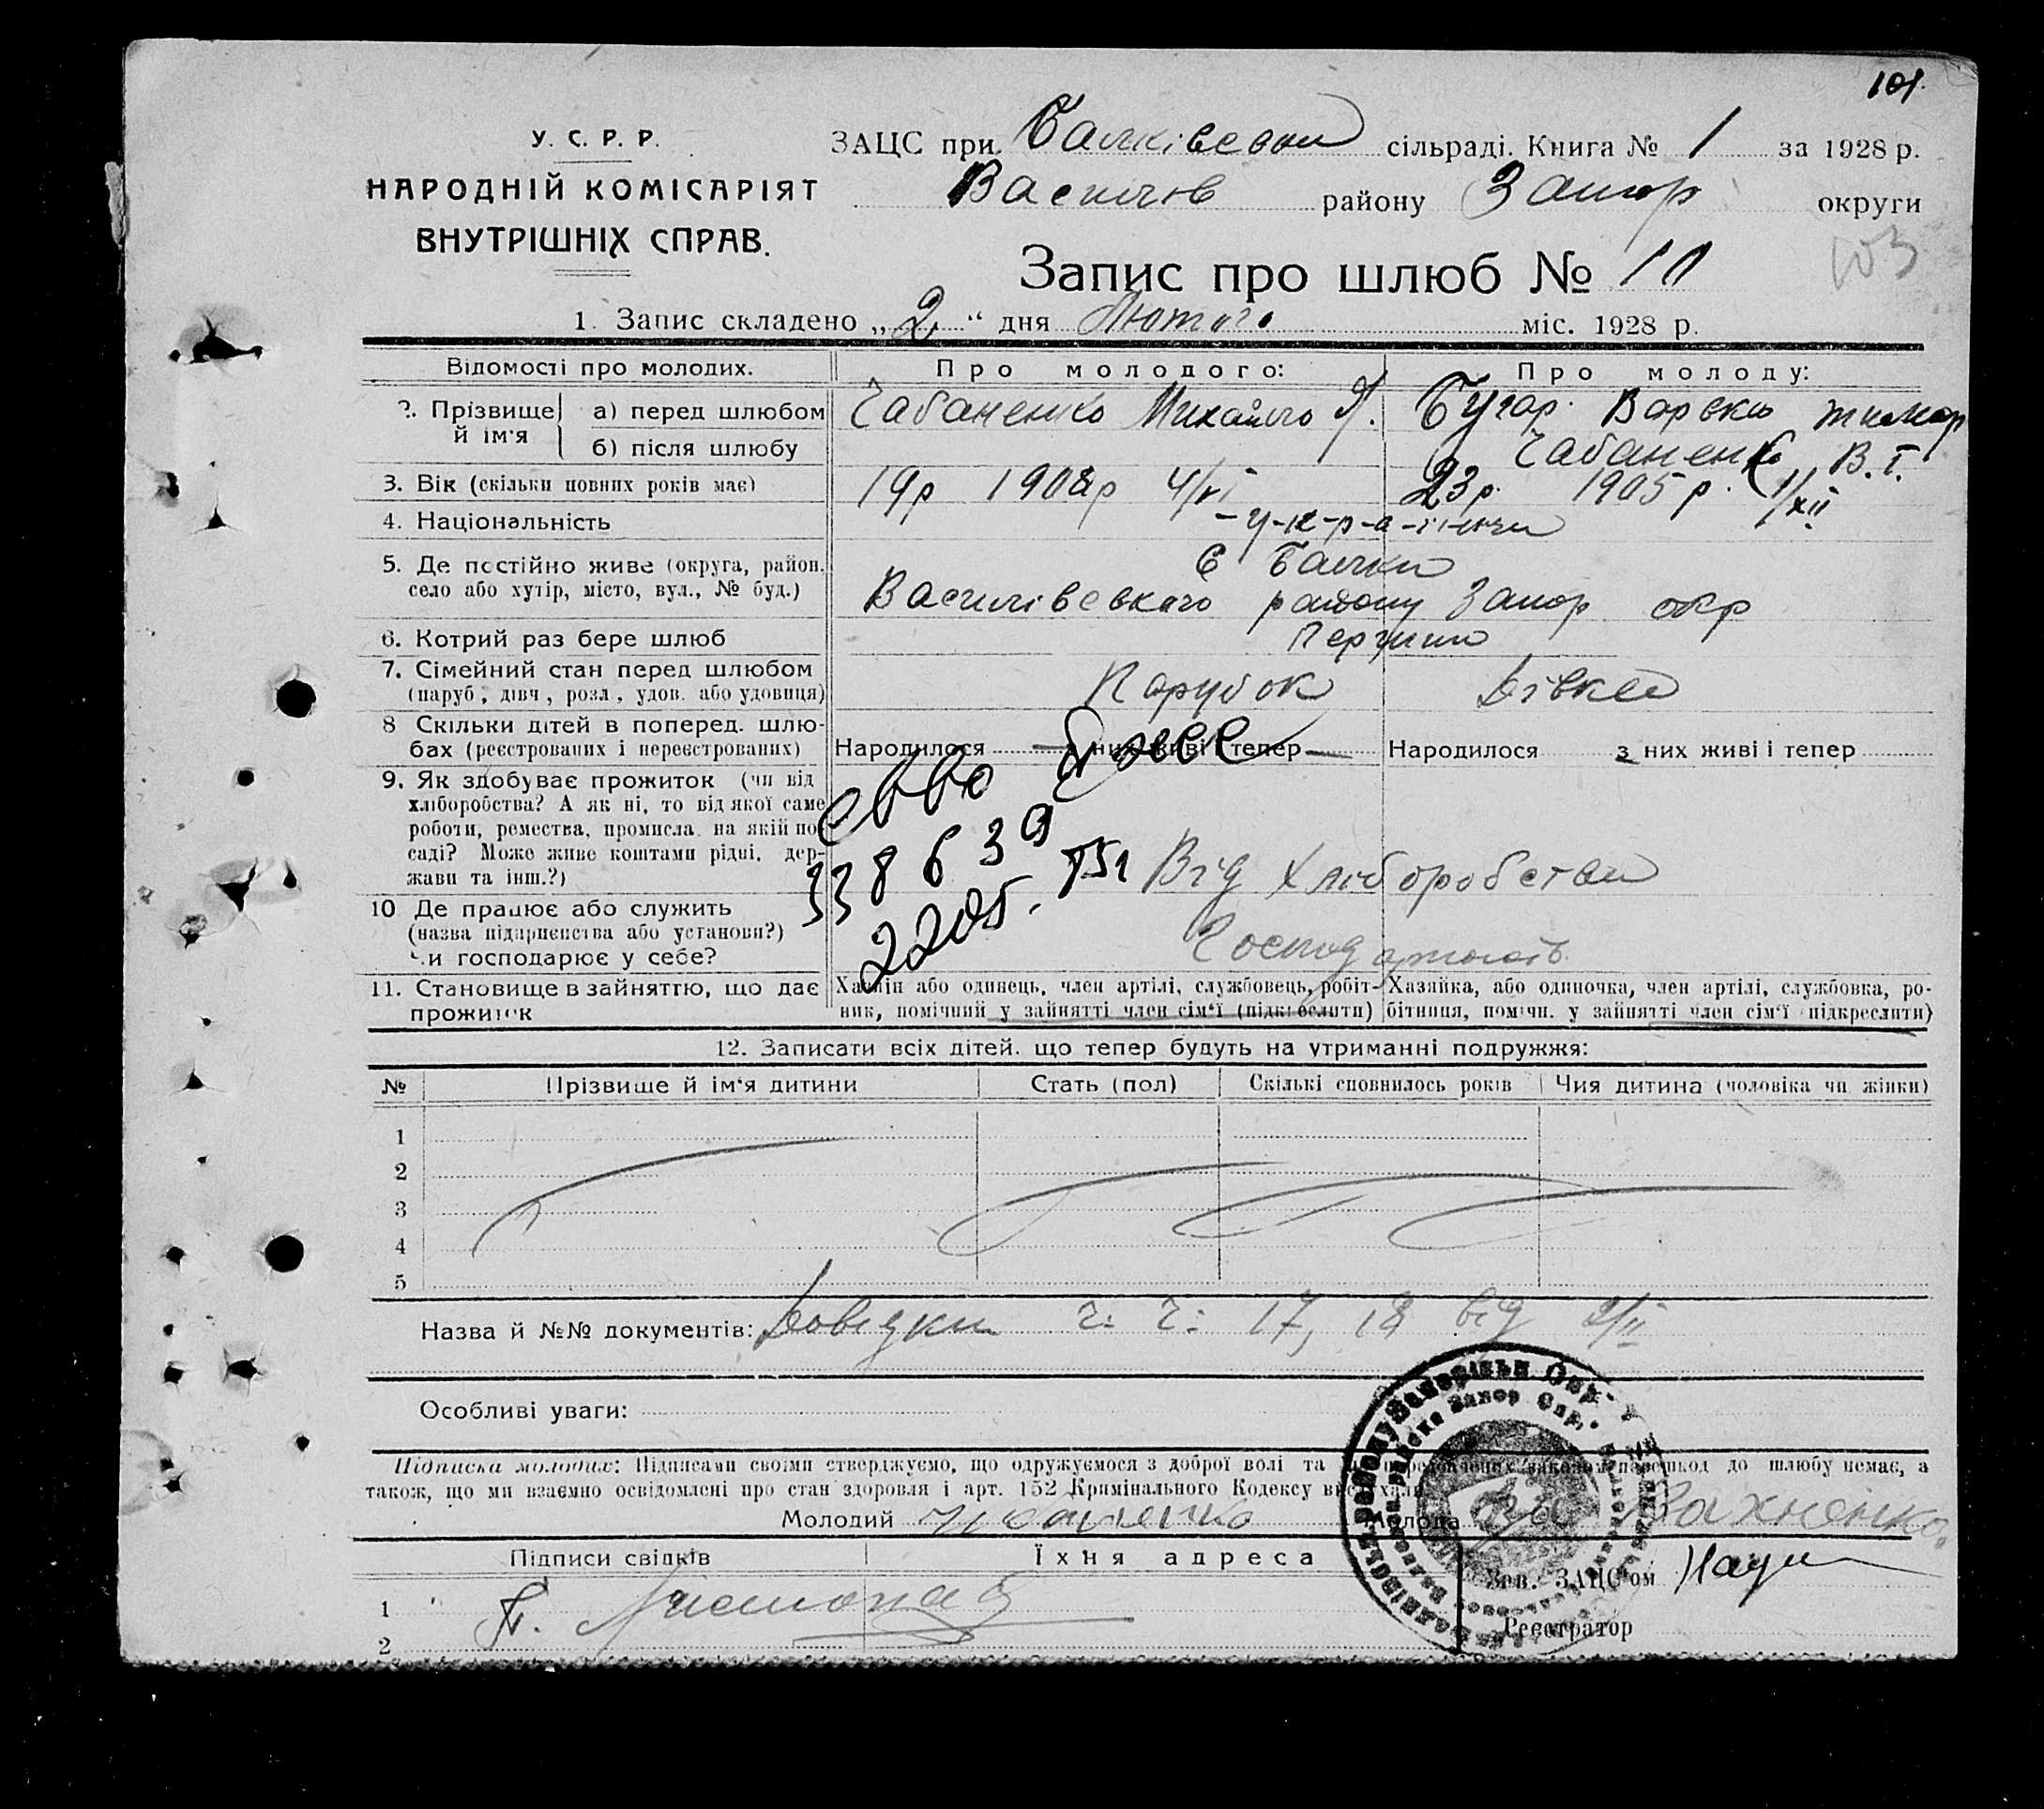 101
У. С. Р. Р.
НАРОДНІЙ КОМІСАРІЯТ
ВНУТРІШНІХ СПРАВ.
ЗАЦС при Балківській сільраді. Книга № 1 за 1928 р.
Василів району Запор округи
103
Запис про шлюб № 11
1. Запис складено „2“ дня Лютого міс. 1928 р.
Відомости про молодих. Про молодого: Про молоду:
2. Прізвище й ім'я
а) перед шлюбом Чабаненко Михайло Бугар Варька тимар
б) після шлюбу Чабаненко В. Т.
3. Вік (скільки повних років має) 19р 1908р 4/VI 23р. 1905 р. 1/XII
4. Національність -у-к-р-а-їнці
5. Де постійно живе (округа, район, село або хутір, місто, вул., № буд.) с Балки
Василівського району Запор окр
6. Котрий раз бере шлюб Перший
7. Сімейний стан перед шлюбом
(паруб., дівч., розл., удов. або удовиця) Парубок Дівка
8 Скільки дітей в поперед. шлю-
бах (реєстрованих і нереєстрованих) Народилося з них живі і тепер Народилося з них живі і тепер
9. Як здобуває прожиток (чи від
хліборобства? А як ні, то від якої саме
роботи, ремества, промисла, на якій по-
саді? Може живе коштами рідні, дер-
жави та інш.?) Від хліборобства
338639
2205. 751
10 Де працює або служить
(назва підприємства або установи?)
Чи господарює у себе? Господарюють
11. Становище в зайняттю, що дає
прожиток
Хазяїн або одинець, член артілі, службовець, робіт-
ник, помічний у зайнятті член сім'ї (підкреслити)
Хазяйка, або одиночка, член артілі, службовка, ро-
бітниця, помічн. у зайнятті член сім'ї (підкреслити)
12. Записати всіх дітей, що тепер будуть на утриманні подружжя:
№ Прізвище й ім'я дитини Стать (пол) Скількі сповнилось років Чия дитина (чоловіка чи жінки)
1
2
3
4
5
Назва й №№ документів: Довідки ч. ч. 17, 18 від 2/II
Особливі уваги:
Підписка молодих: Підписами своїми стверджуємо, що одружуємося з доброї волі та передбачених законом перешкод до шлюбу немає, а
також, що ми взаємно освідомлені про стан здоровля і арт. 152 Кримінального Кодексу вислухали.
Молодий Чабаненко Молода Вахненко
Підписи свідків Їхня адреса
Зав. ЗАЦС'ом
1 П. Листопад
Реєстратор
2